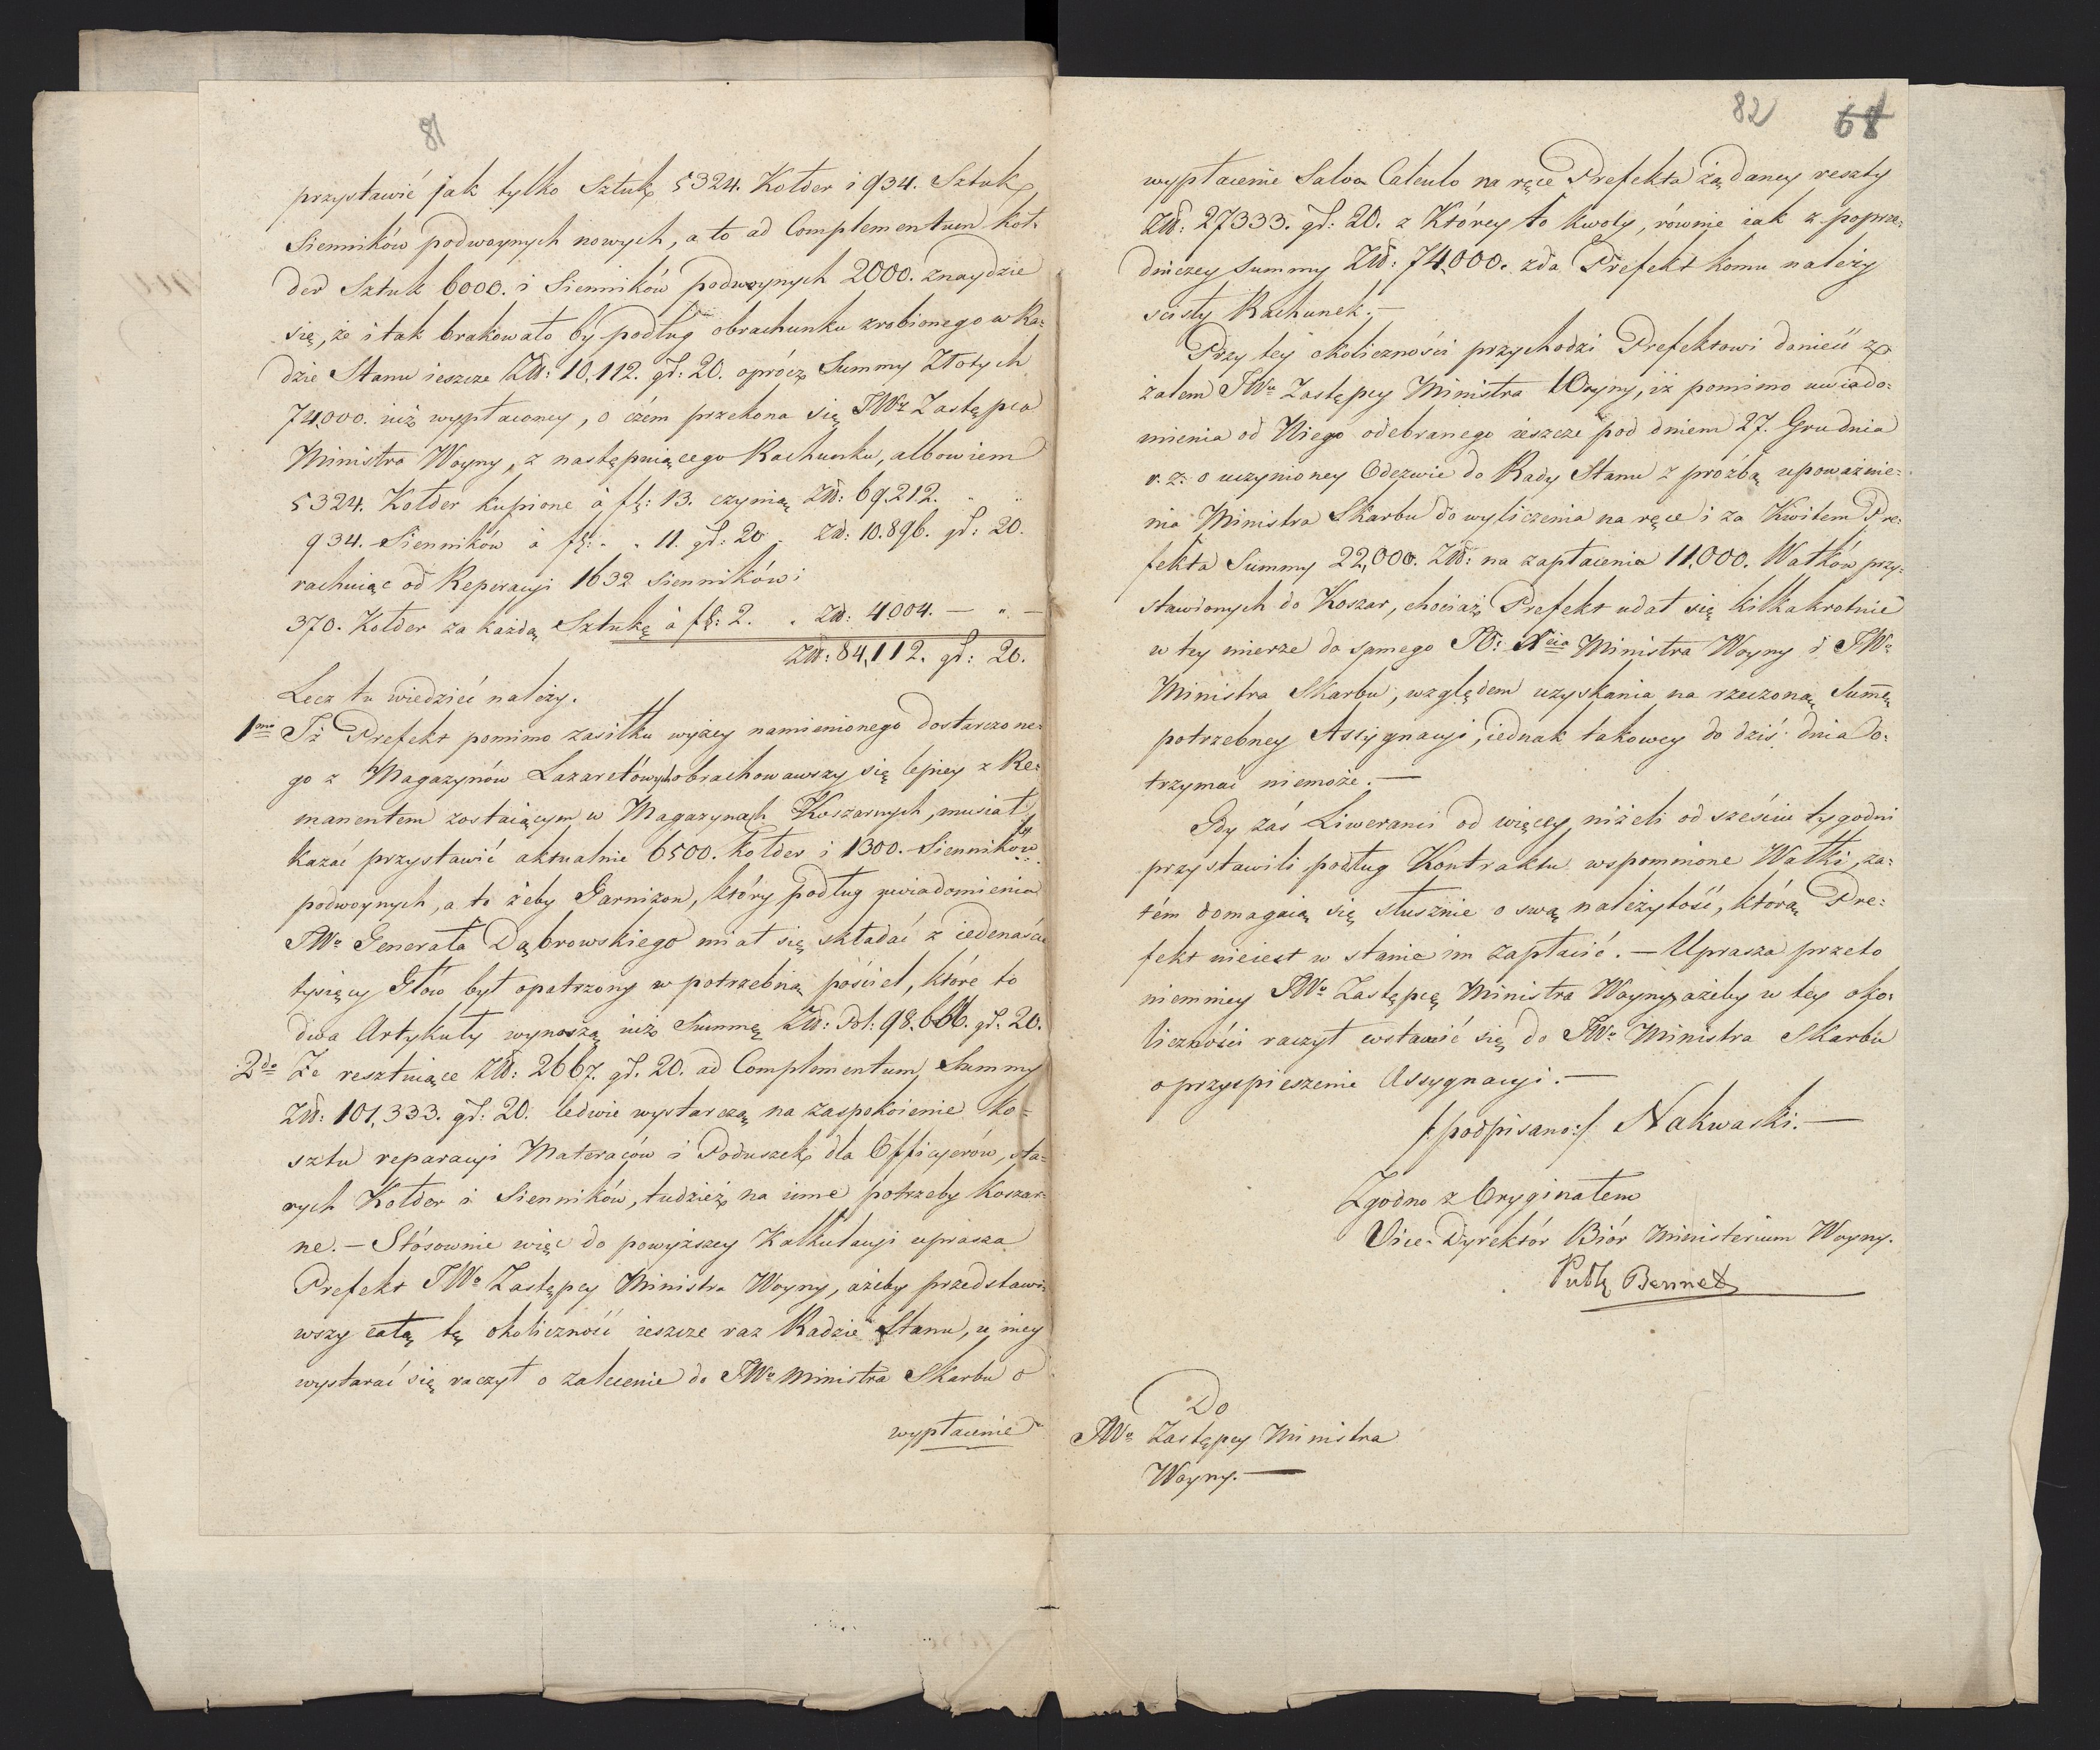 81
przystawić jak tylko Sztuk 5324. Kołder i 934. Sztuk
Sienników podwoynych nowych, a to ad Complementum koł-
der Sztuk 6000. i Sienników podwoynych 2000. znaydzie
się, że i tak brakowało by podług obrachunku zrobionego w Ra=
dzie Stanu ieszcze Zł: 10,112. gł: 20. oprócz Summy Złotych
74,000. iuż wypłaconey, o czém przekona się JW. Zastępca
Ministra Woyny, z następuiącego Rachunku, albowiem
5324. Kołder kupione à fl: 13. czynią Zł: 69.212. " "
934. Sienników à fl: " " 11. gł: 20 . Zł: 10.896. gł: 20.
rachuiąc od Reperacyi 1632 Sienników i
370. Kołder za każdą Sztukę à fl: 2. . Zł: 4004. — " —
Zł: 84,112. gł: 20.
Lecz tu wiedzieć należy.
1mo Iż Prefekt pomimo zasiłku wyżey namienionego dostarczone-
go z Magazynów Lazaretowych obrachowawszy się lepiey z Re=
manentem zostaiącym w Magazynach Koszarnych, musiał
kazać przystawić aktualnie 6500. kołder i 1300. Sienników
podwoynych, a to żeby Garnizon, który podług uwiadomienia
JW. Generała Dąbrowskiego miał się składać z iedenaście
tysięcy Głów był opatrzony w potrzebną pościel, które to
dwa Artykuły wynoszą iuż Summę Zł: Pol: 98,666. gł. 20.
2do Że resztuiące Zł: 2667. gł. 20. ad Complementum Summy
Zł: 101,333. gł: 20. ledwie wystarczą na zaspokoienie ko=
sztu reparacyi Materaców i Poduszek dla Officyerów, sta=
rych Kołder i Sienników, tudzież na inne potrzeby koszar=
ne. — Stósownie więc do powyższey Kalkulacyi uprasza
Prefekt JW. Zastępcy Ministra Woyny, ażeby przedstawi=
wszy całą tę okoliczność ieszcze raz Radzie Stanu, u niey
wystarać się raczył o zalecenie do JW. Ministra Skarbu o
wypłacenie
82 68
wypłacenie Salvo Calculo na ręce Prefekta żądaney reszty
Zł: 27333. gł: 20. z Którey to kwoty, równie iak z poprze=
dniczey Summy Zł: 74,000. zda Prefekt komu należy
scisły Rachunek. —
Przy tey okoliczności przychodzi Prefektowi donieść z
żalem JW. Zastępcy Ministra Woyny, iż pomimo uwiado=
mienia od Niego odebranego ieszcze pod dniem 27. Grudnia
r. z. o uczynioney Odezwie do Rady Stanu z proźbą upoważnie=
nia Ministra Skarbu do wyliczenia na ręce i za Kwitem Pre=
fekta Summy 22,000. Zł: na zapłacenie 11,000. Wałków przy=
stawionych do Koszar, chociaż Prefekt udał się kilkakrotnie
w tey mierze do samego JO: Xcia Ministra Woyny i JW.
Ministra Skarbu, względem uzyskania na rzeczoną Summę
potrzebney Assygnacyi, iednak takowey do dziś dnia o=
trzymać niemoże. —
Gdy zaś Liweranci od więcey niżeli od sześciu tygodni
przystawili podług Kontraktu wspomnione Wałki, za=
tém domagaią się słusznie o swą należytość, którą Pre=
fekt nieiest w stanie im zapłacić. — Uprasza przeto
niemniey JW. Zastępcę Ministra Woyny, ażeby w tey oko=
liczności raczył wstawić się do JW. Ministra Skarbu
o przyspieszenie Assygnacyi. —
/:podpisano:/ Nakwaski. —
Zgodno z Oryginałem
Vice-Dyrektór Biór Ministerium Woyny.
Pułk Bennet
Do
JW. Zastępcy Ministra
Woyny. —